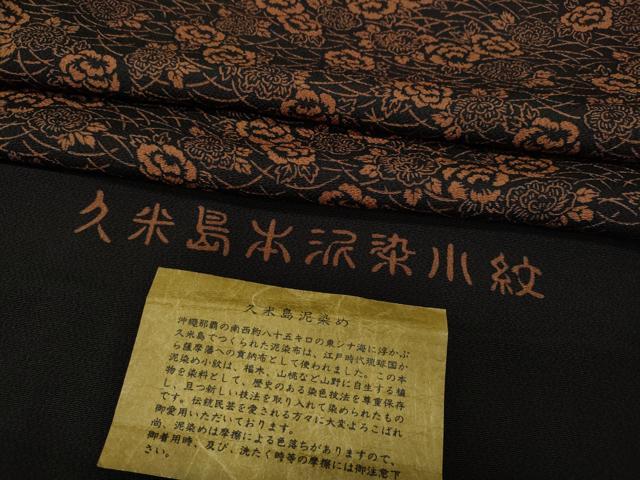 久米島本泥染小紋
久米島泥染め
沖縄那覇の南西約八十五キロの東シナ海に浮かぶ
久米島でつくられた泥染布は、江戸時代琉球国か
ら薩摩藩への貢納布として使われました。この本
泥染め小紋は、福木、山桃など山野に自生する植
物を染料として、歴史のある染色技法を尊重保存
し、且つ新しい技法を取り入れて染められたもの
です。伝統民芸を愛される方々に大変よろこばれ
御愛用いただいております。
尚、泥染めは摩擦による色落ちがありますので、
御着用時、及び、洗たく時等の摩擦には御注意下
さい。